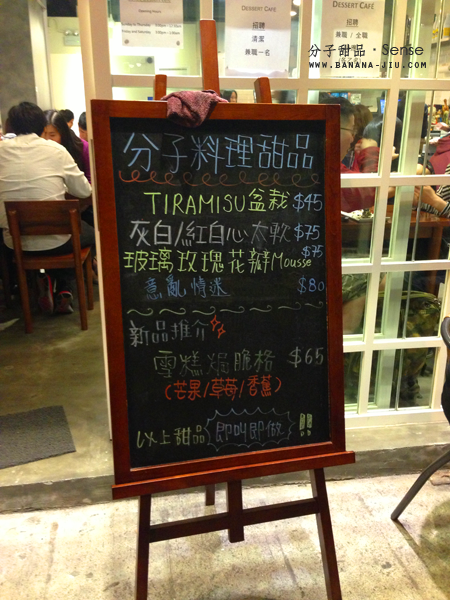 DESSERT CAFE
招聘
清潔
兼職一名
DESSERT CAFE
招聘
兼職 / 全職
分子甜品・Sense
WWW.BANANA-JIU.COM
分子料理甜品
TIRAMISU盆栽 $45
灰白/紅白心太軟 $75
玻璃玫瑰花瓣Mousse $75
意亂情迷 $80
新品推介
雪糕焗脆格 $65
(芒果/草莓/香蕉)
以上甜品 即叫即做 !!